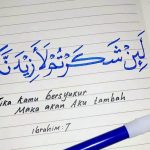 لَئِنْ شَكَرْتُمْ لَأَزِيدَنَّ
Jika kamu bersyukur
Maka akan Aku tambah
ibrahim : 7